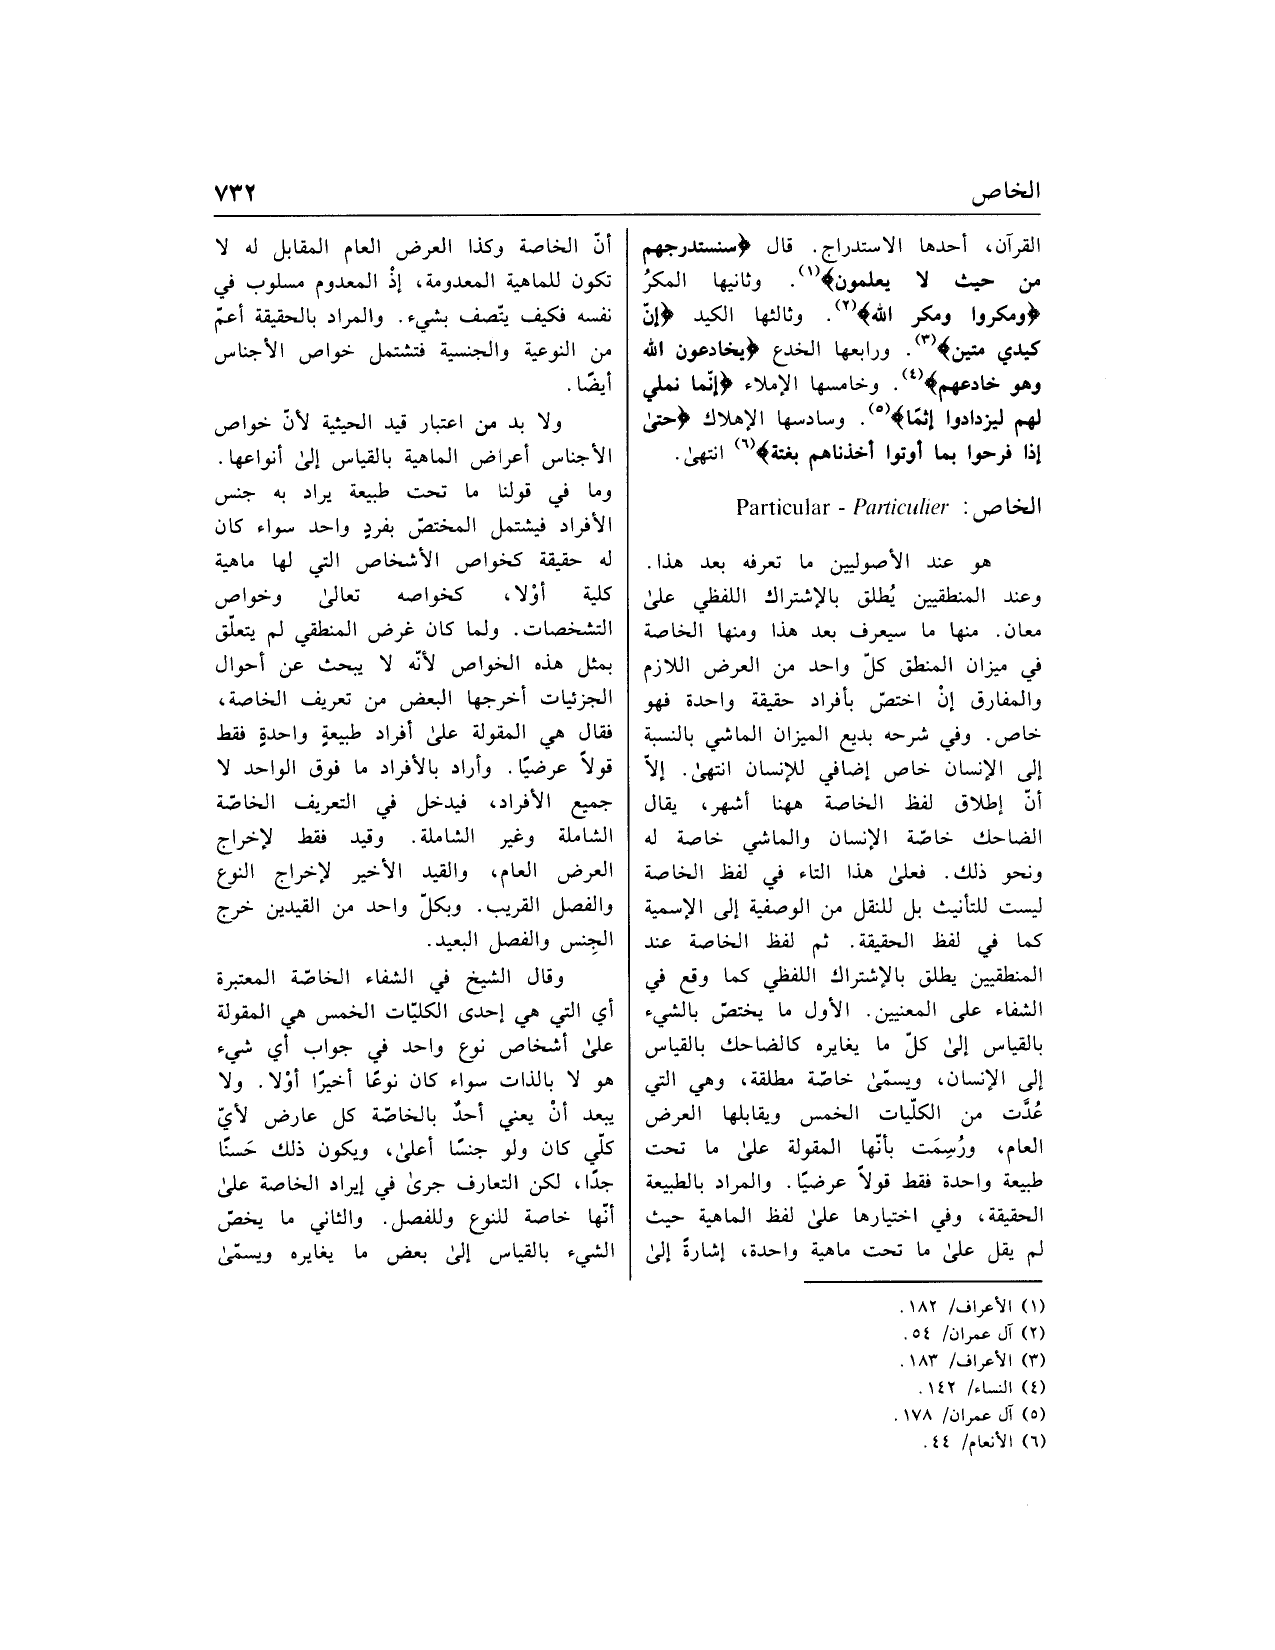 الخاص
٧٣٢
القرآن، أحدها الاستدراج. قال ﴿سنستدرجهم
من حيث لا يعلمون﴾(١). وثانيها المكرُ
﴿ومكروا ومكر الله﴾(٢). وثالثها الكيد ﴿إنّ
كيدي متين﴾(٣). ورابعها الخدع ﴿يخادعون الله
وهو خادعهم﴾(٤). وخامسها الإملاء ﴿إنّما نملي
لهم ليزدادوا إثمًا﴾(٥). وسادسها الإهلاك ﴿حتىٰ
إذا فرحوا بما أوتوا أخذناهم بغتة﴾(٦) انتهىٰ.
الخاص: Particular - Particulier
هو عند الأصوليين ما تعرفه بعد هذا.
وعند المنطقيين يُطلق بالإشتراك اللفظي علىٰ
معان. منها ما سيعرف بعد هذا ومنها الخاصة
في ميزان المنطق كلّ واحد من العرض اللازم
والمفارق إنْ اختصّ بأفراد حقيقة واحدة فهو
خاص. وفي شرحه بديع الميزان الماشي بالنسبة
إلى الإنسان خاص إضافي للإنسان انتهىٰ. إلاّ
أنّ إطلاق لفظ الخاصة ههنا أشهر، يقال
الضاحك خاصّة الإنسان والماشي خاصة له
ونحو ذلك. فعلىٰ هذا التاء في لفظ الخاصة
ليست للتأنيث بل للنقل من الوصفية إلى الإسمية
كما في لفظ الحقيقة. ثم لفظ الخاصة عند
المنطقيين يطلق بالإشتراك اللفظي كما وقع في
الشفاء على المعنيين. الأول ما يختصّ بالشيء
بالقياس إلىٰ كلّ ما يغايره كالضاحك بالقياس
إلى الإنسان، ويسمّىٰ خاصّة مطلقة، وهي التي
عُدَّت من الكلّيات الخمس ويقابلها العرض
العام، ورُسِمَت بأنّها المقولة علىٰ ما تحت
طبيعة واحدة فقط قولاً عرضيًا. والمراد بالطبيعة
الحقيقة، وفي اختيارها علىٰ لفظ الماهية حيث
لم يقل علىٰ ما تحت ماهية واحدة، إشارةً إلىٰ
أنّ الخاصة وكذا العرض العام المقابل له لا
تكون للماهية المعدومة، إذْ المعدوم مسلوب في
نفسه فكيف يتّصف بشيء. والمراد بالحقيقة أعمّ
من النوعية والجنسية فتشتمل خواص الأجناس
أيضًا.
ولا بد من اعتبار قيد الحيثية لأنّ خواص
الأجناس أعراض الماهية بالقياس إلىٰ أنواعها.
وما في قولنا ما تحت طبيعة يراد به جنس
الأفراد فيشتمل المختصّ بفردٍ واحد سواء كان
له حقيقة كخواص الأشخاص التي لها ماهية
كلية أوْلا، كخواصه تعالىٰ وخواص
التشخصات. ولما كان غرض المنطقي لم يتعلّق
بمثل هذه الخواص لأنّه لا يبحث عن أحوال
الجزئيات أخرجها البعض من تعريف الخاصة،
فقال هي المقولة علىٰ أفراد طبيعةٍ واحدةٍ فقط
قولاً عرضيًا. وأراد بالأفراد ما فوق الواحد لا
جميع الأفراد، فيدخل في التعريف الخاصّة
الشاملة وغير الشاملة. وقيد فقط لإخراج
العرض العام، والقيد الأخير لإخراج النوع
والفصل القريب. وبكلّ واحد من القيدين خرج
الجِنس والفصل البعيد.
وقال الشيخ في الشفاء الخاصّة المعتبرة
أي التي هي إحدى الكليّات الخمس هي المقولة
علىٰ أشخاص نوع واحد في جواب أي شيء
هو لا بالذات سواء كان نوعًا أخيرًا أوْلا. ولا
يبعد أنْ يعني أحدٌ بالخاصّة كل عارض لأيّ
كلّي كان ولو جنسًا أعلىٰ، ويكون ذلك حَسنًا
جدًا، لكن التعارف جرىٰ في إيراد الخاصة علىٰ
أنّها خاصة للنوع وللفصل. والثاني ما يخصّ
الشيء بالقياس إلىٰ بعض ما يغايره ويسمّىٰ
(١) الأعراف/ ١٨٢.
(٢) آل عمران/ ٥٤.
(٣) الأعراف/ ١٨٣.
(٤) النساء/ ١٤٢.
(٥) آل عمران/ ١٧٨.
(٦) الأنعام/ ٤٤.